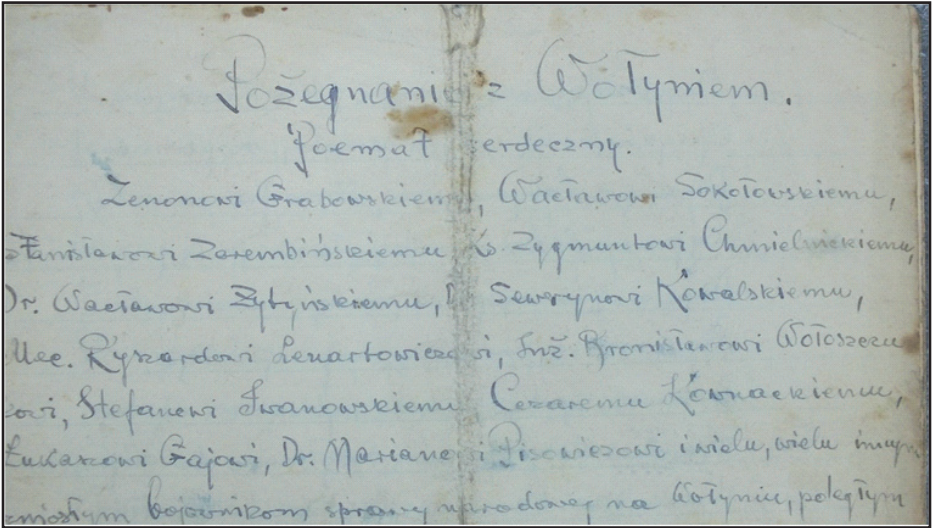 Pożegnanie z Wołyniem.
Poemat serdeczny.
Zenonowi Grabowskiemu, Wacławowi Sokołowskiemu,
Stanisławowi Zarembińskiemu Ks. Zygmuntowi Chmielnickiemu,
Dr. Wacławowi Żytyńskiemu, Sewerynowi Kowalskiemu,
Mec. Ryszardowi Lenartowiczowi, Inż. Bronisławowi Wołoszczu
owi, Stefanowi Iwanowskiemu Cezaremu Kownackiemu,
Łukaszowi Gajowi, Dr. Marianowi Pisowiczowi i wielu, wielu innym
bojownikom sprawy narodowej na Wołyniu, poległym